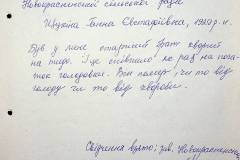 Новокрасненської сільської ради
Щукіна Ганна Євстафіївна, 1929 р.н.
Був у мене старший брат хворий
на тиф. І це співпало як раз на поча-
ток голодовки. Він помер, чи то від
голоду чи то від хвороби.
Свідчення взято: зав. Новокрасненсь